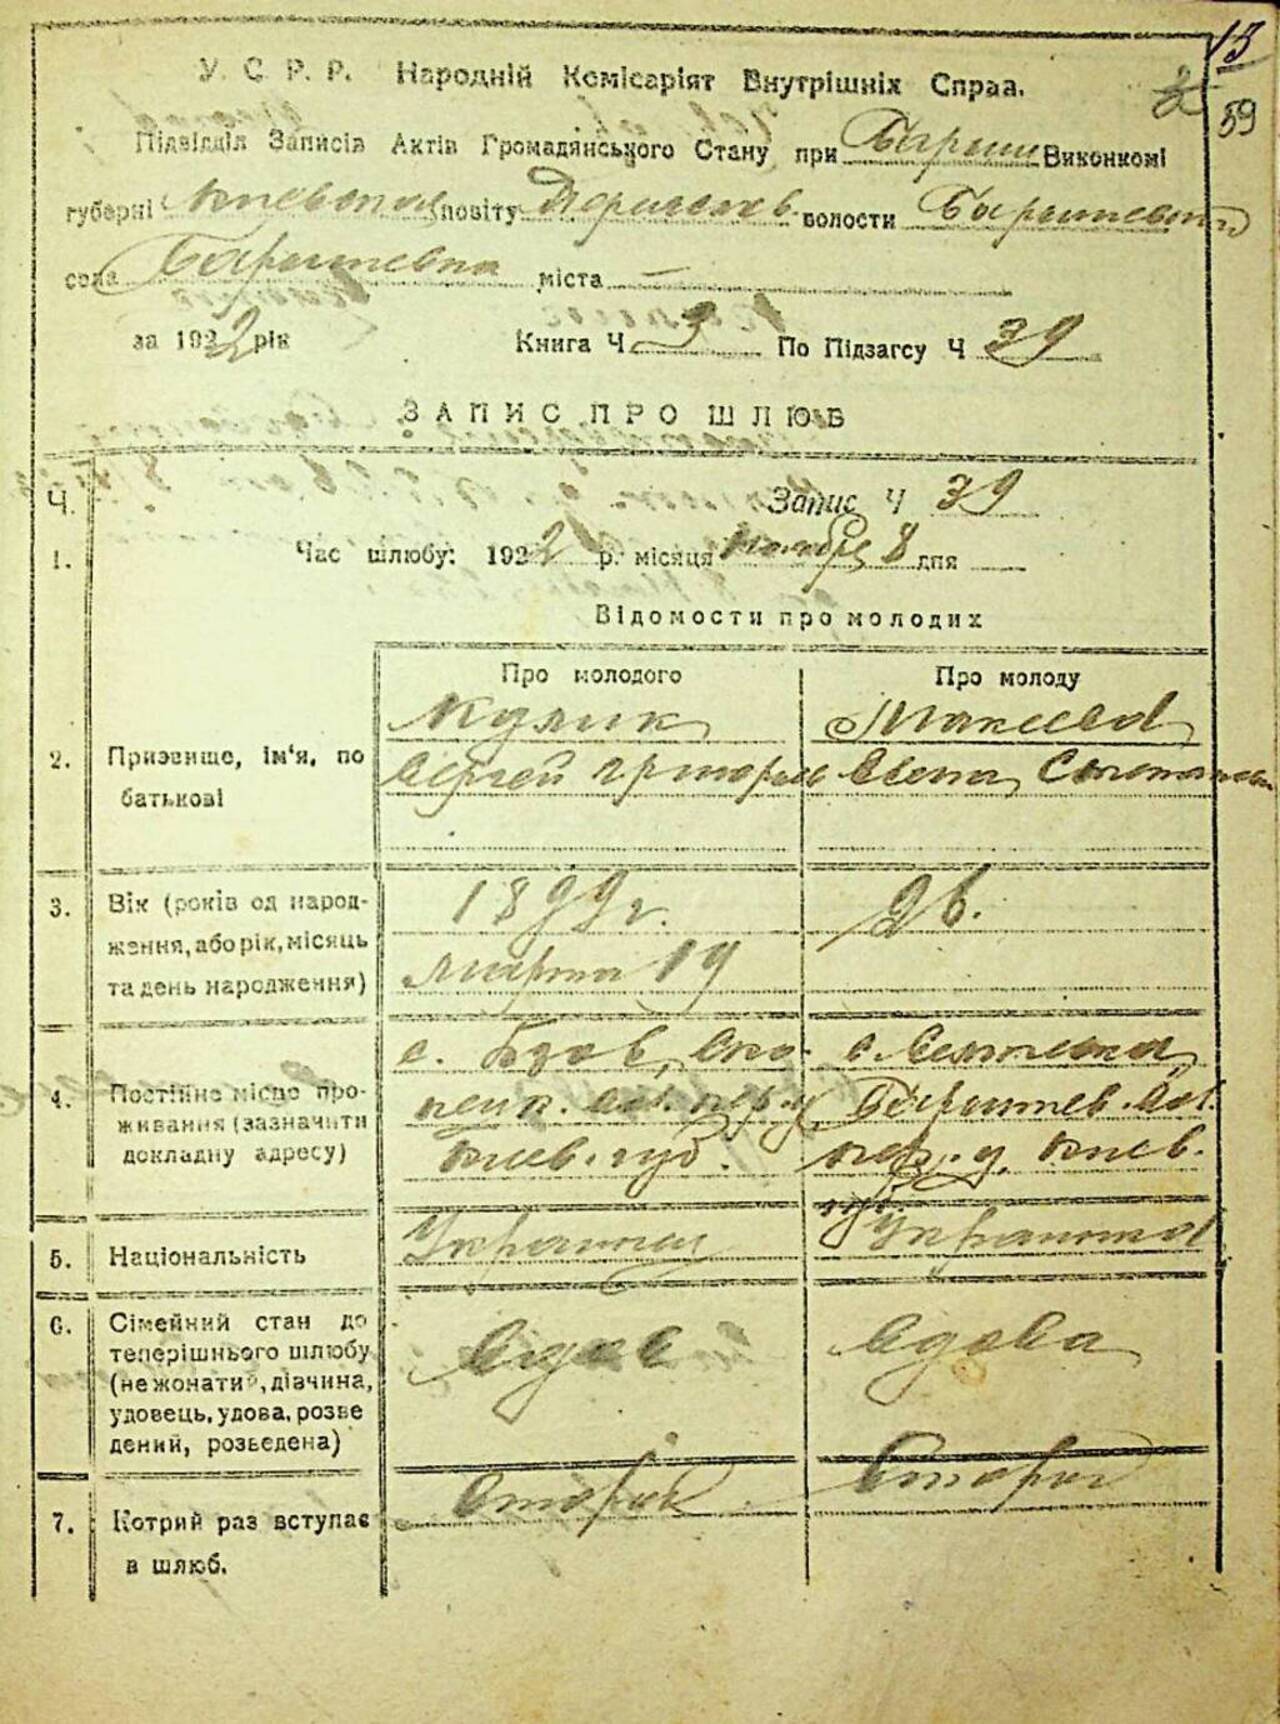 15
59
У. С. Р. Р. Народній Комісаріят Внутрішніх Справ.
Підвідділ Записів Актів Громадянського Стану при Бариш Виконкомі
губерні Киевской повіту Переяслав. волости Барышевской
села Барышевка міста —
за 1922 рік Книга Ч 3 По Підзагсу Ч 39
ЗАПИС ПРО ШЛЮБ
Ч. Запис Ч 39
1. Час шлюбу: 1922 р. місяця Ноября 8 дня
Відомости про молодих
Про молодого Про молоду
Кулик Макеева
2. Призвище, ім'я, по батькові
Сергей Григорьев Елена
3. Вік (років од народження, або рік, місяць та день народження)
1899 г. 26.
марта 19
4. Постійне місце проживання (зазначити докладну адресу)
с. Бзов, с. Селитевка
вол. пер. у. Барышев. вол.
Киев. губ. пер. у. Киев.
губ.
5. Національність
Украинец Украинка
6. Сімейний стан до теперішнього шлюбу (нежонатий, дівчина, удовець, удова, розведений, розведена)
Вдов Вдова
7. Котрий раз вступає в шлюб.
Второй Второй